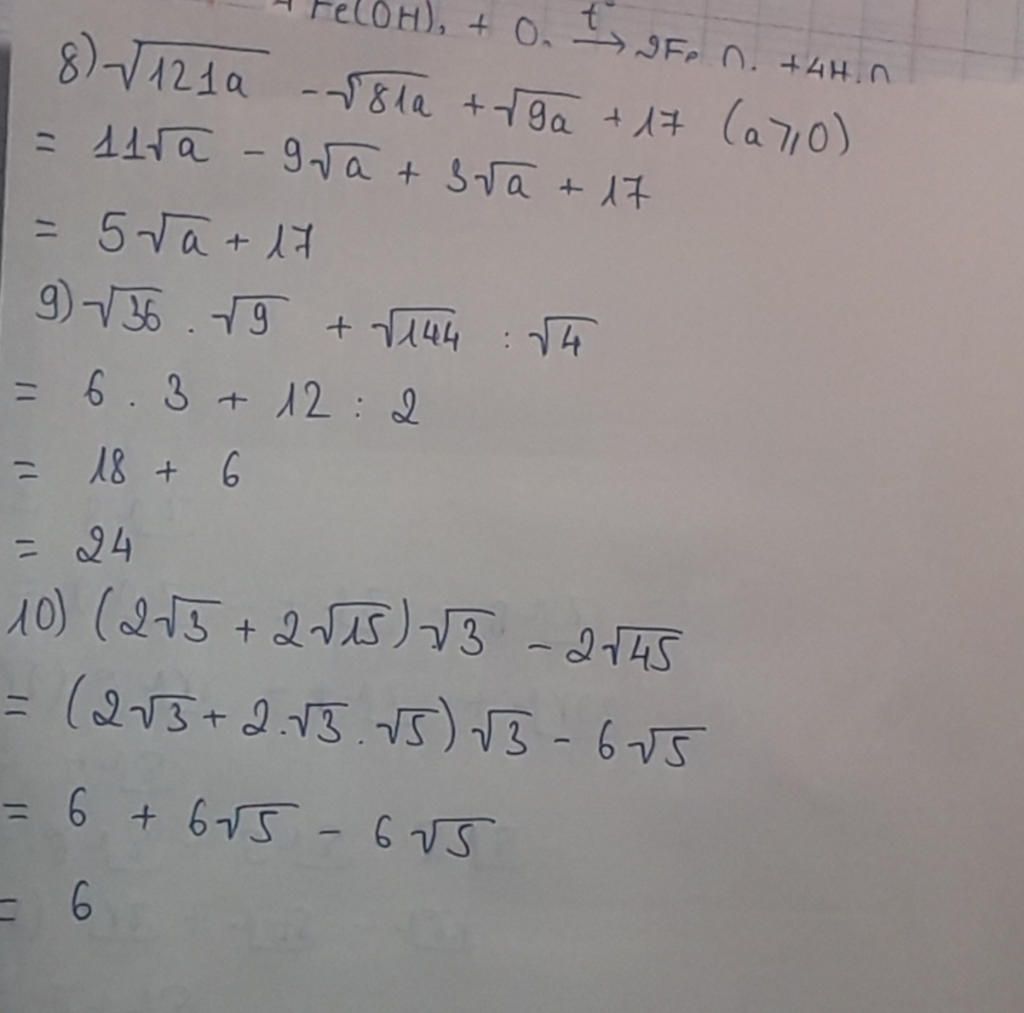 Fe(OH)₂ + O₂ t° → 2Fe + 4H
8) √121a - √81a + √9a + 17 (a ⩾ 0)
= 11√a - 9√a + 3√a + 17
= 5√a + 17
9) √36 . √9 + √144 : √4
= 6 . 3 + 12 : 2
= 18 + 6
= 24
10) (2√3 + 2√15)√3 - 2√45
= (2√3 + 2.√3.√5)√3 - 6√5
= 6 + 6√5 - 6√5
= 6